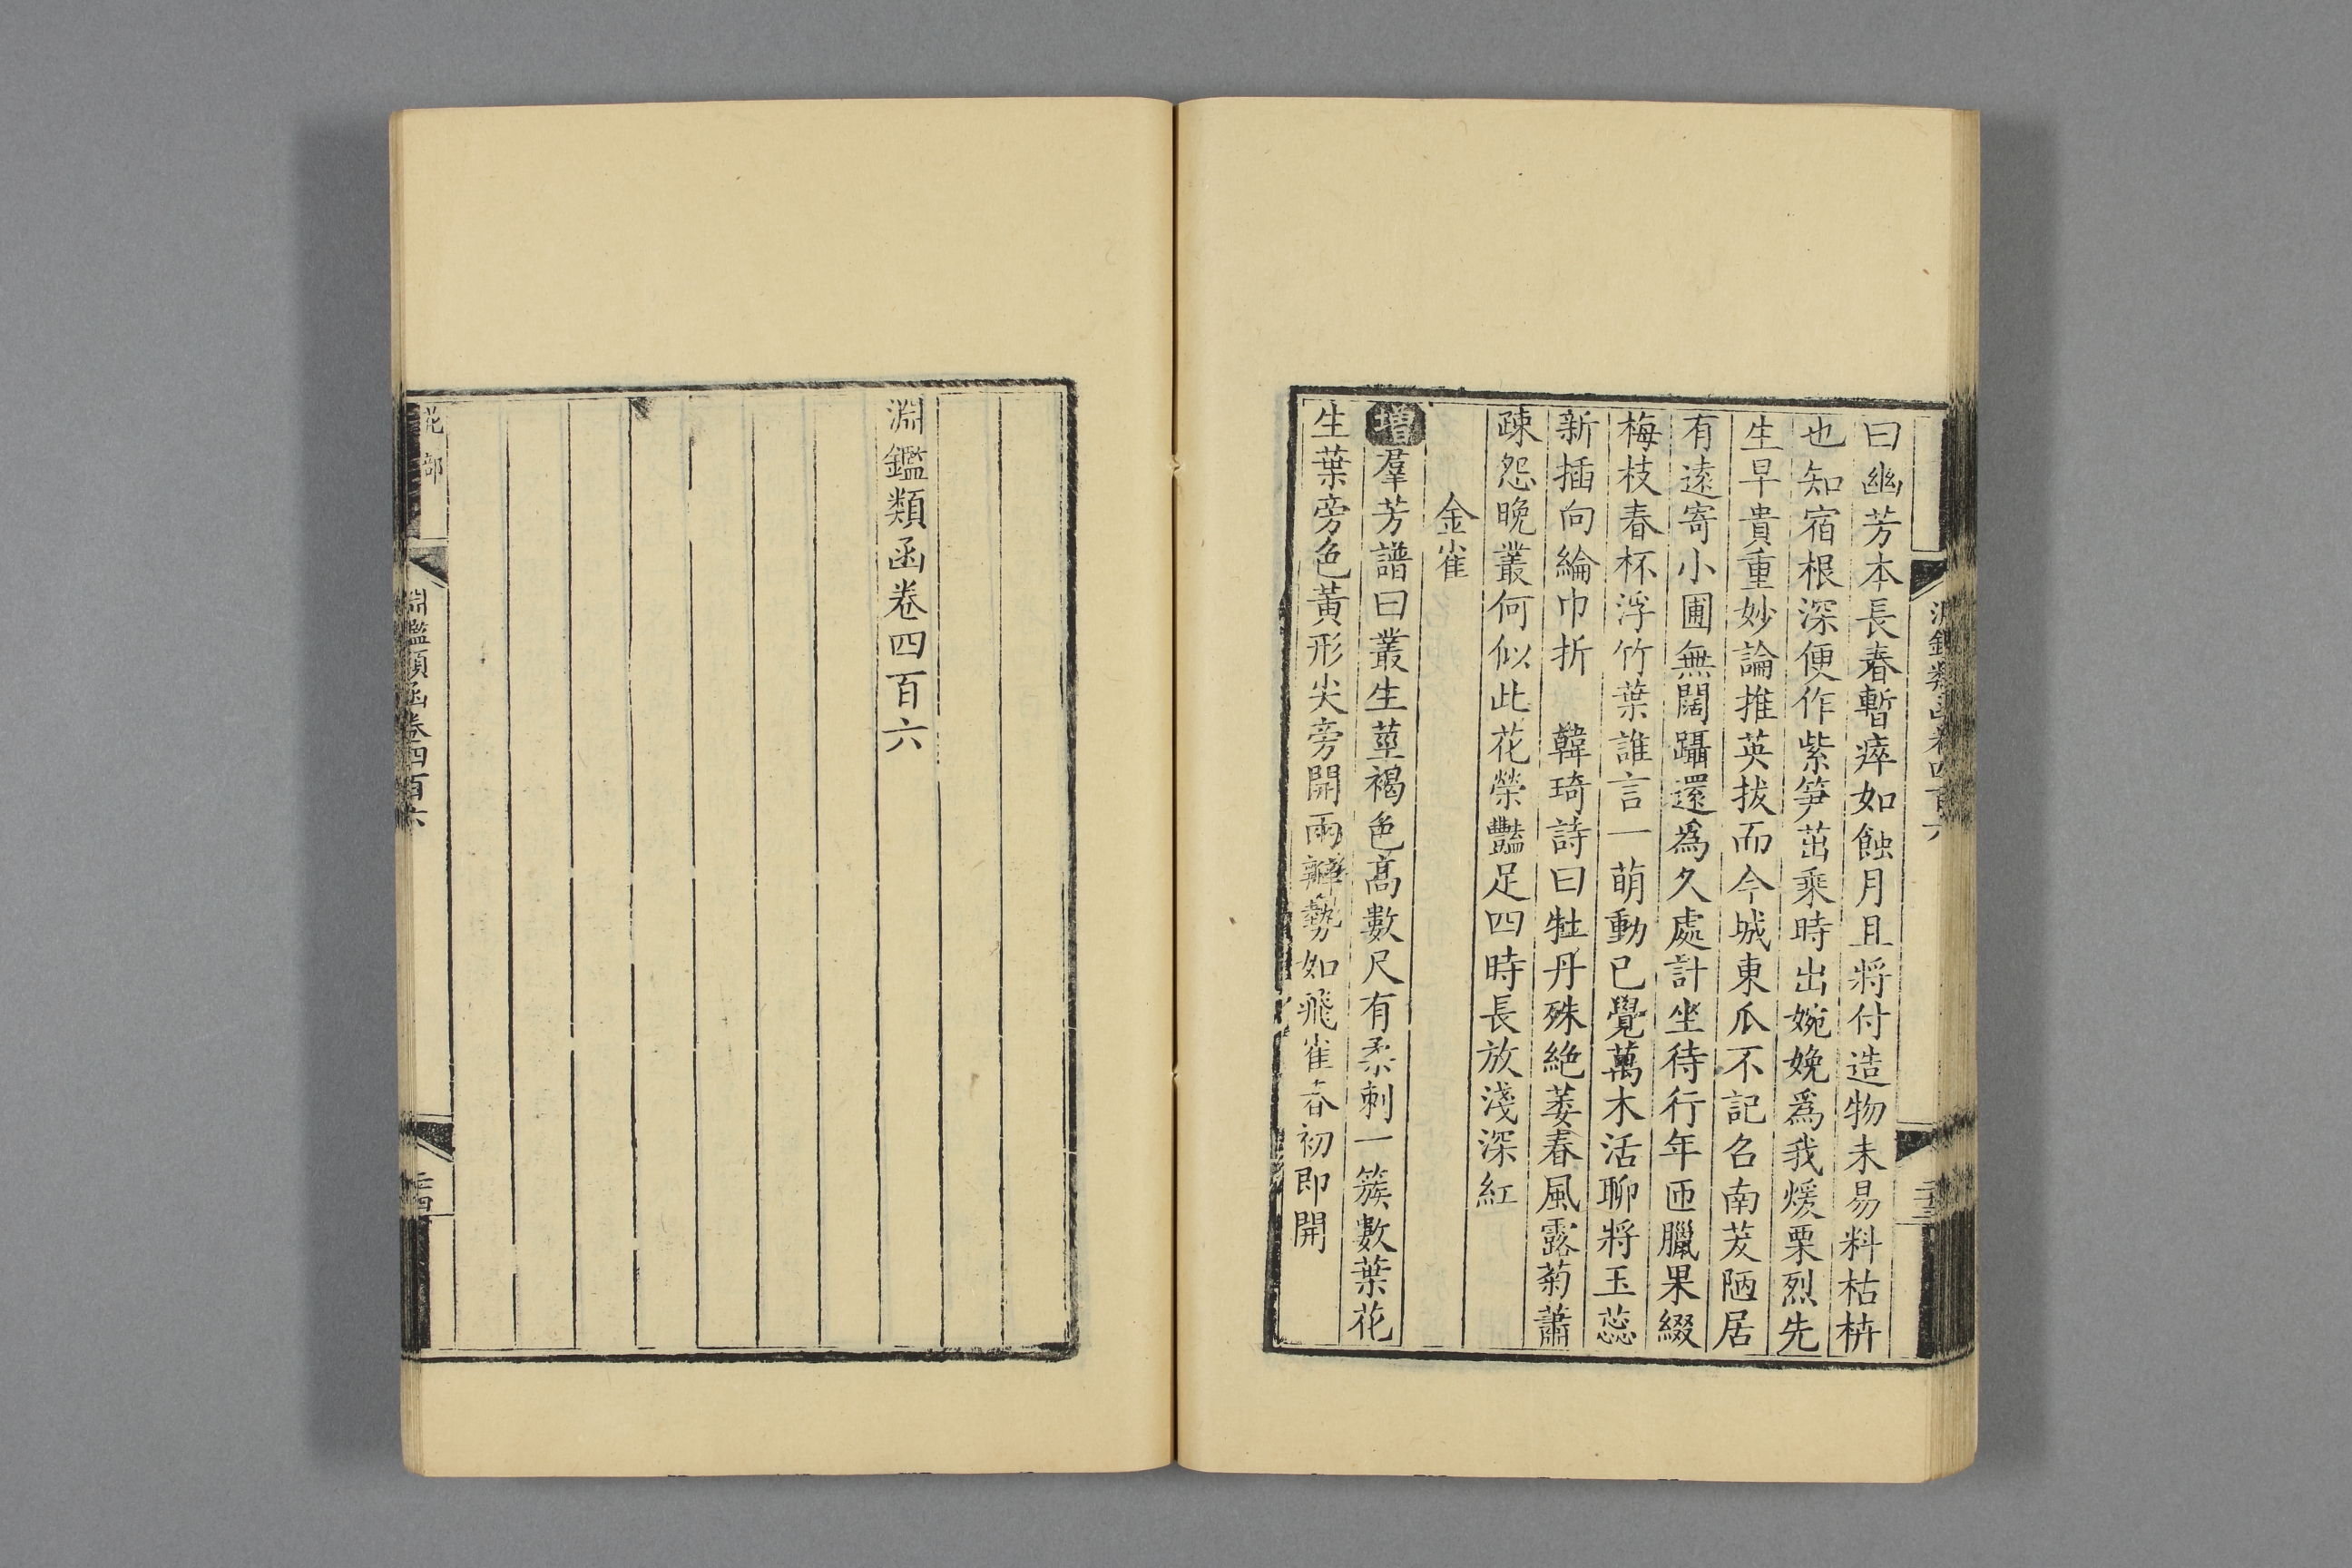 曰幽芳本長春暫瘁如蝕月且將付造物未易料枯枿
也知宿根深便作紫笋茁乘時出婉娩爲我煖栗烈先
生早貴重妙論推英拔而今城東瓜不記召南茇陋居
有遠寄小圃無闊躡還爲久處計坐待行年匝臘果綴
梅枝春杯浮竹葉誰言一萌動已覺萬木活聊將玉蕊
新插向綸巾折　韓琦詩曰牡丹殊絶萎春風露菊蕭
疎怨晚叢何似此花榮豔足四時長放淺深紅
金雀
增羣芳譜曰叢生莖褐色高數尺有柔刺一簇數葉花
生葉旁色黃形尖旁開兩瓣勢如飛雀春初即開
淵鑑類函卷四百六
二十三
淵鑑類函卷四百六
花部
淵鑑類函卷四百六
二十四